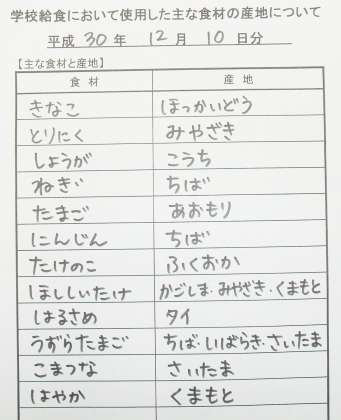 学校給食において使用した主な食材の産地について
平成 30 年 12 月 10 日分
【主な食材と産地】
食材 産地
きなこ ほっかいどう
とりにく みやざき
しょうが こうち
ねぎ ちば
たまご あおもり
にんじん ちば
たけのこ ふくおか
ほししいたけ かごしま・みやざき・くまもと
はるさめ タイ
うずらたまご ちば・いばらき・さいたま
こまつな さいたま
はやか くまもと